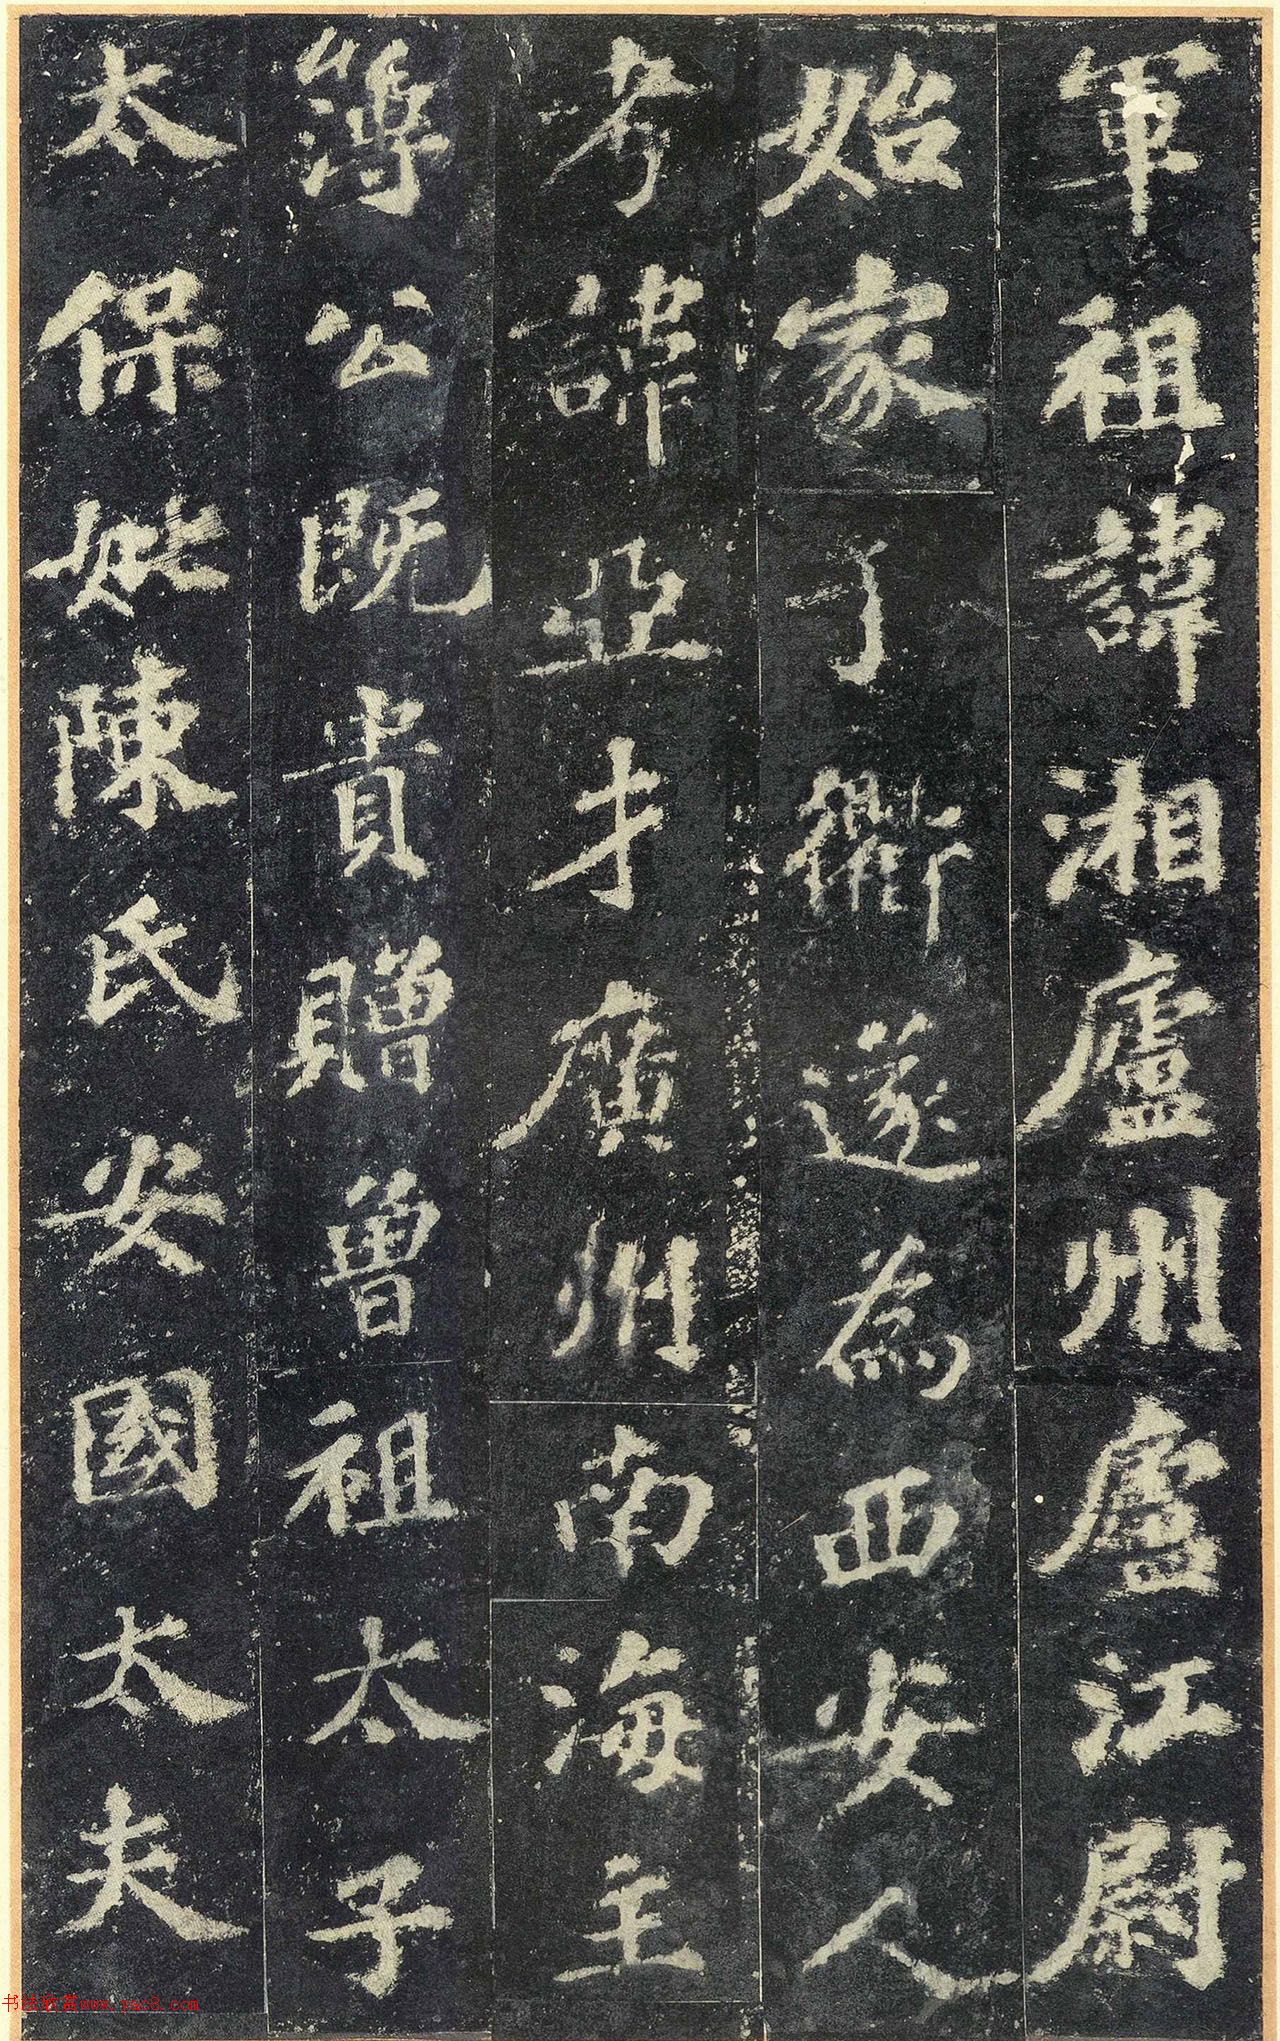 軍祖諱湘廬州廬江尉
始家于衢遂為西安人
考諱亞才廣州南海主
簿公既貴贈曾祖太子
太保妣陳氏安國太夫
书法欣赏www.yac8.com